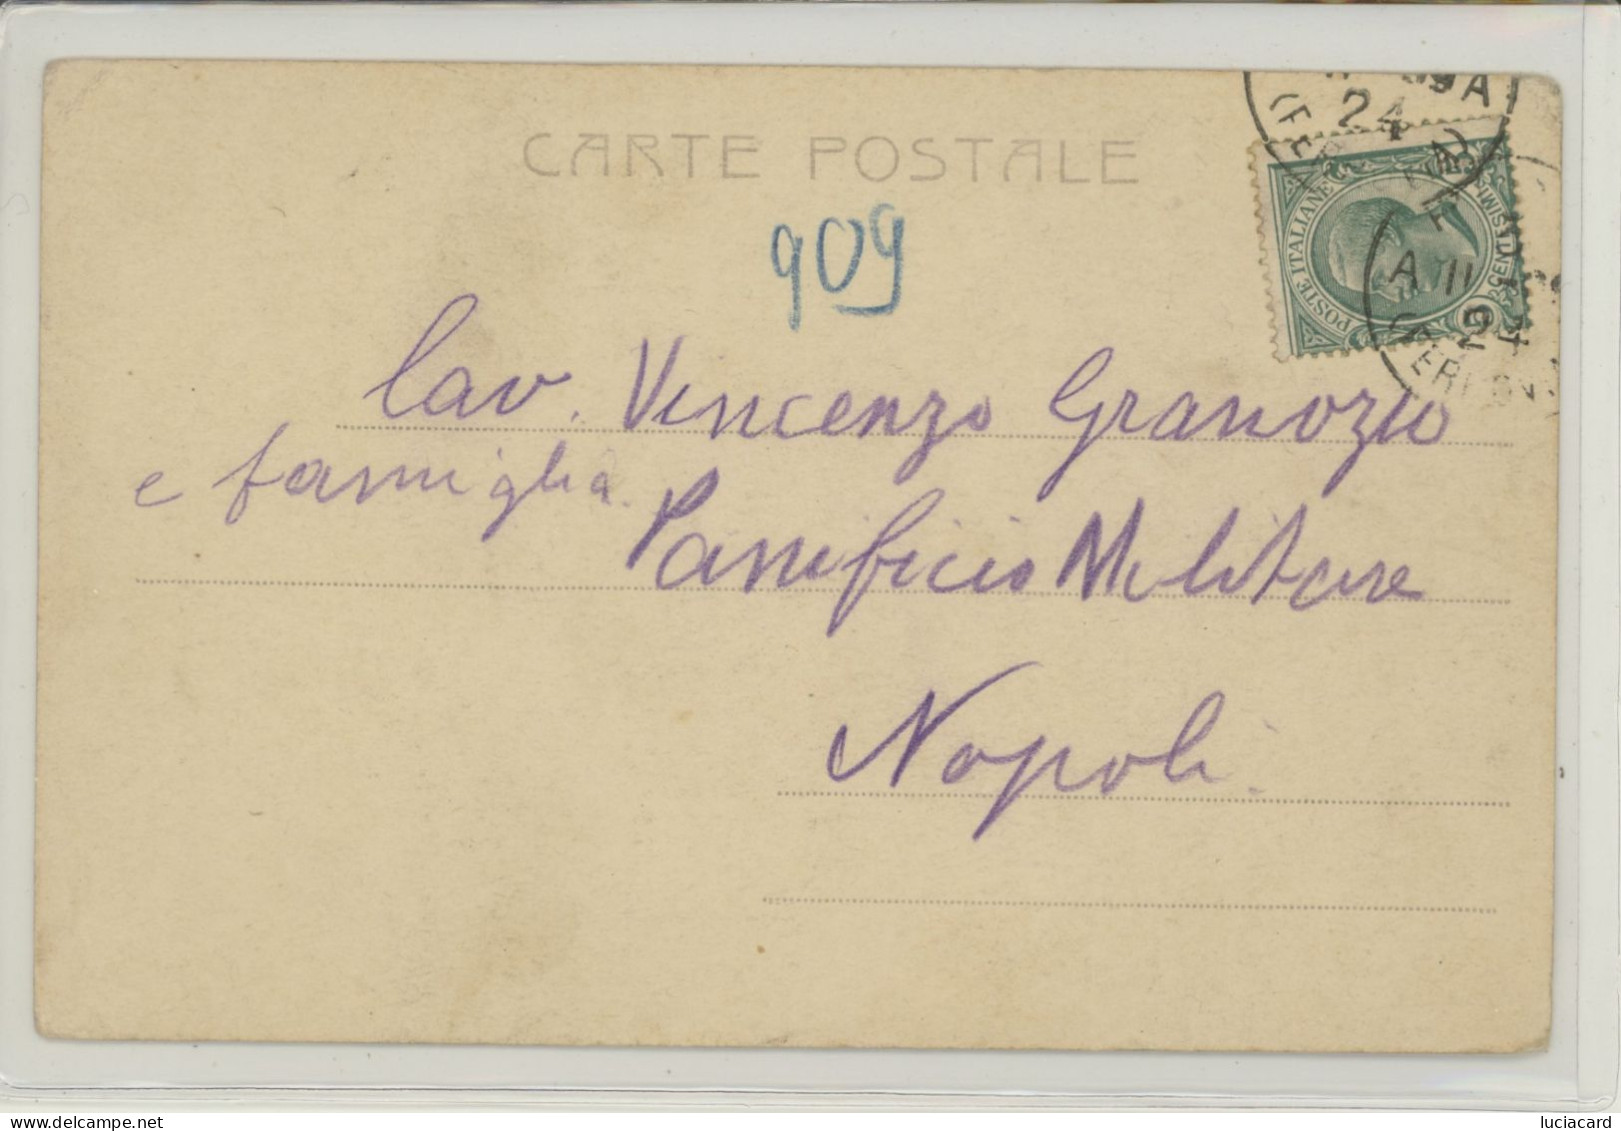 CARTE POSTALE
909
24
POSTE ITALIANE
CENTESIMI
Cav. Vincenzo Granozio
e famiglia.
Panificio Militare
Napoli.
delcampe.net
luciacard